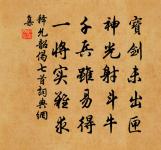 寶劍未出匣
神光射斗牛
千兵雖易得
一將實難求
釋允韶偈七首詞典網
集